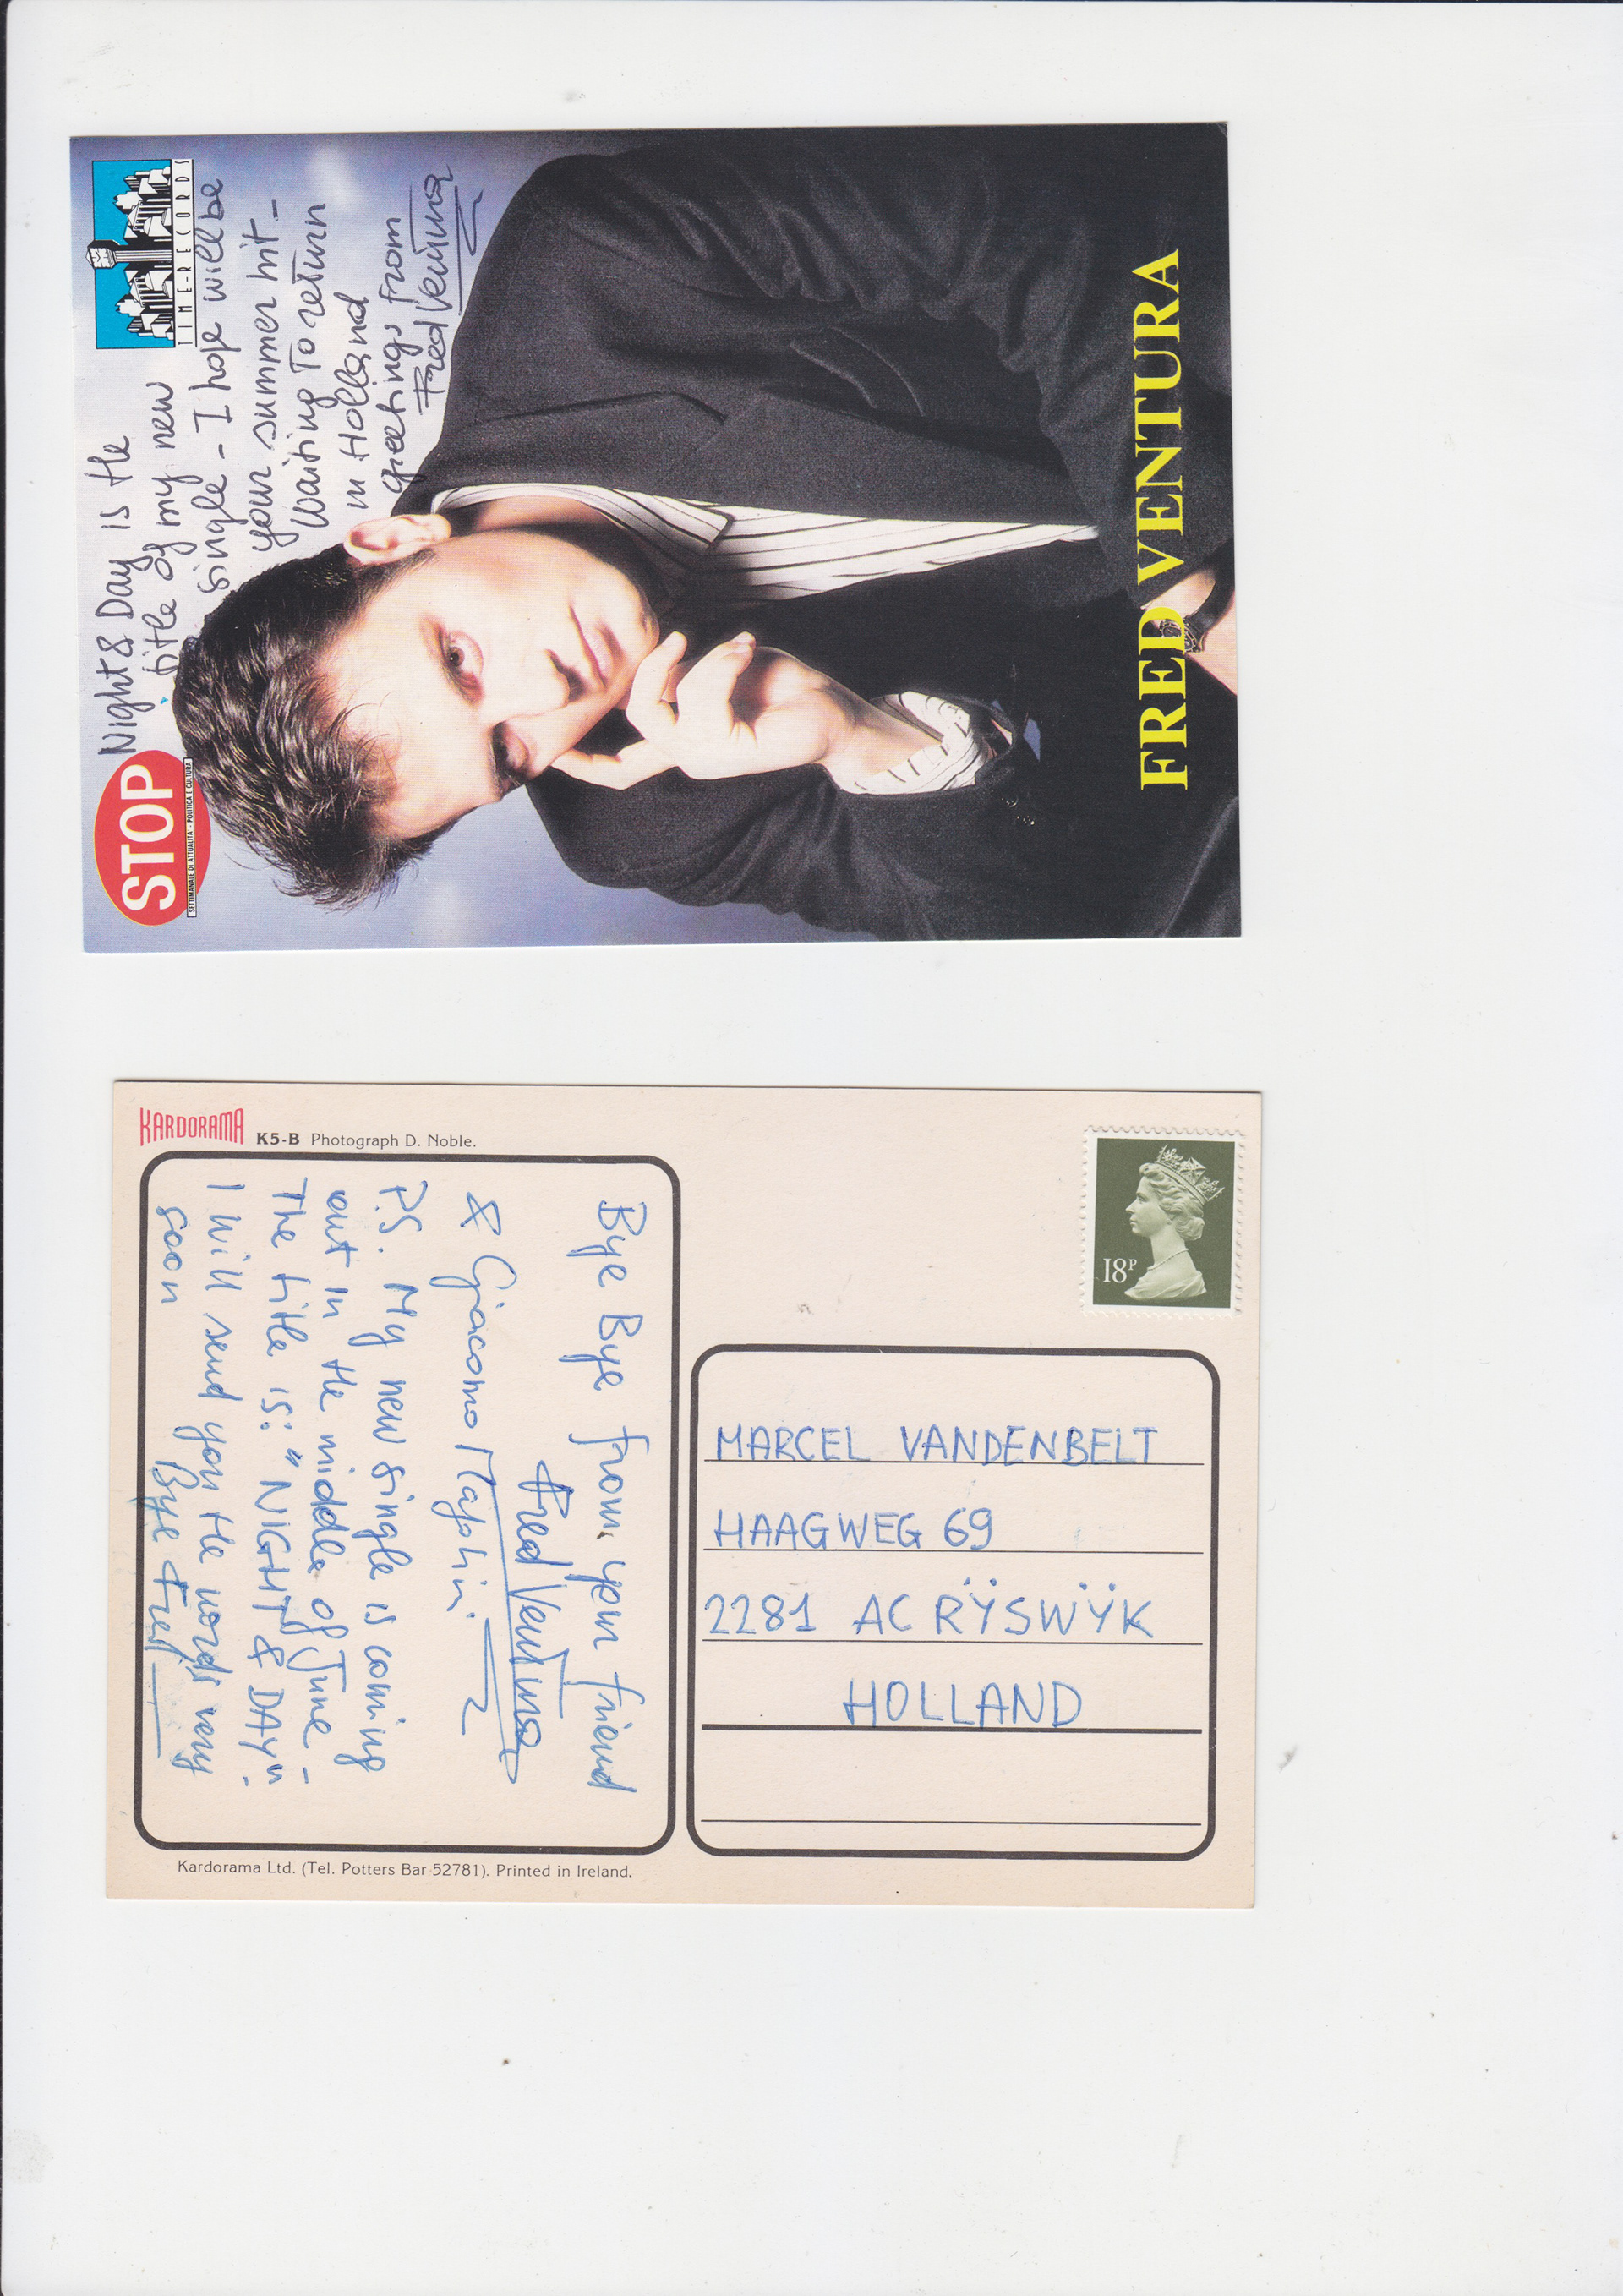 STOP
SETTIMANALE DI ATTUALITA' - POLITICA E CULTURA
TIME-RECORDS
Night & Day is the
title of my new
single - I hope will be
your summer hit -
Waiting To return
in Holland
greetings from
Fred Ventura
FRED VENTURA
KARDORAMA
K5-B Photograph D. Noble.
Bye Bye from your friend
Fred Ventura
& Giacomo
P.S. My new single is coming
out in the middle of June -
The title is: "NIGHT & DAY" -
I will send you the words very
soon
Bye Fred
Kardorama Ltd. (Tel. Potters Bar 52781). Printed in Ireland.
18P
MARCEL VANDENBELT
HAAGWEG 69
2281 AC RŸSWŸK
HOLLAND